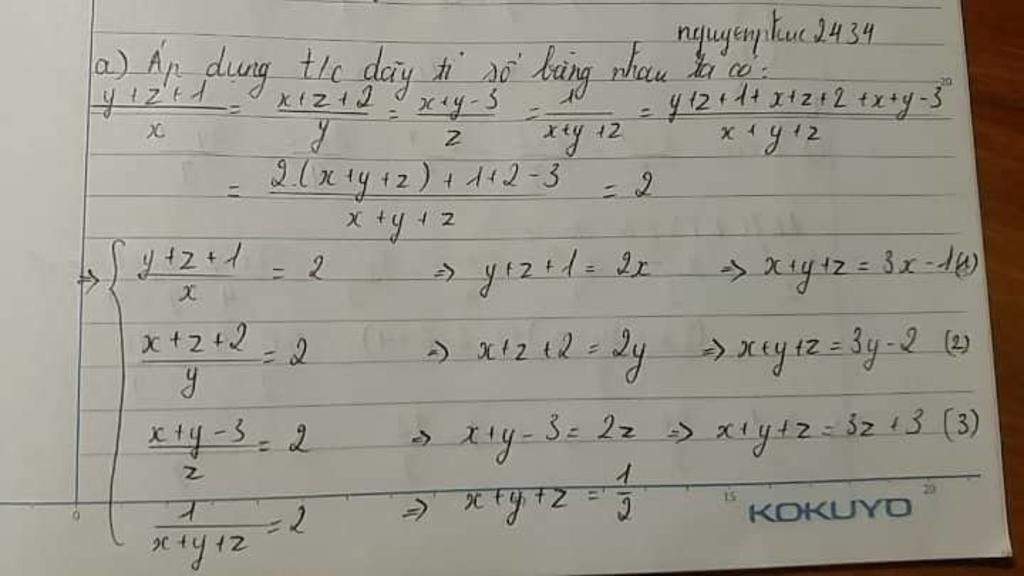 nguyenphuc2434
a) Áp dụng t/c dãy tỉ số bằng nhau ta có:
\frac{y+z+1}{x} = \frac{x+z+2}{y} = \frac{x+y-3}{z} = \frac{1}{x+y+z} = \frac{y+z+1+x+z+2+x+y-3}{x+y+z}
= \frac{2.(x+y+z)+1+2-3}{x+y+z} = 2
=> { \frac{y+z+1}{x} = 2 => y+z+1=2x => x+y+z=3x-1(1)
\frac{x+z+2}{y} = 2 => x+z+2=2y => x+y+z=3y-2 (2)
\frac{x+y-3}{z} = 2 => x+y-3=2z => x+y+z=3z+3 (3)
\frac{1}{x+y+z} = 2 => x+y+z = \frac{1}{2}
0 15 20
KOKUYO